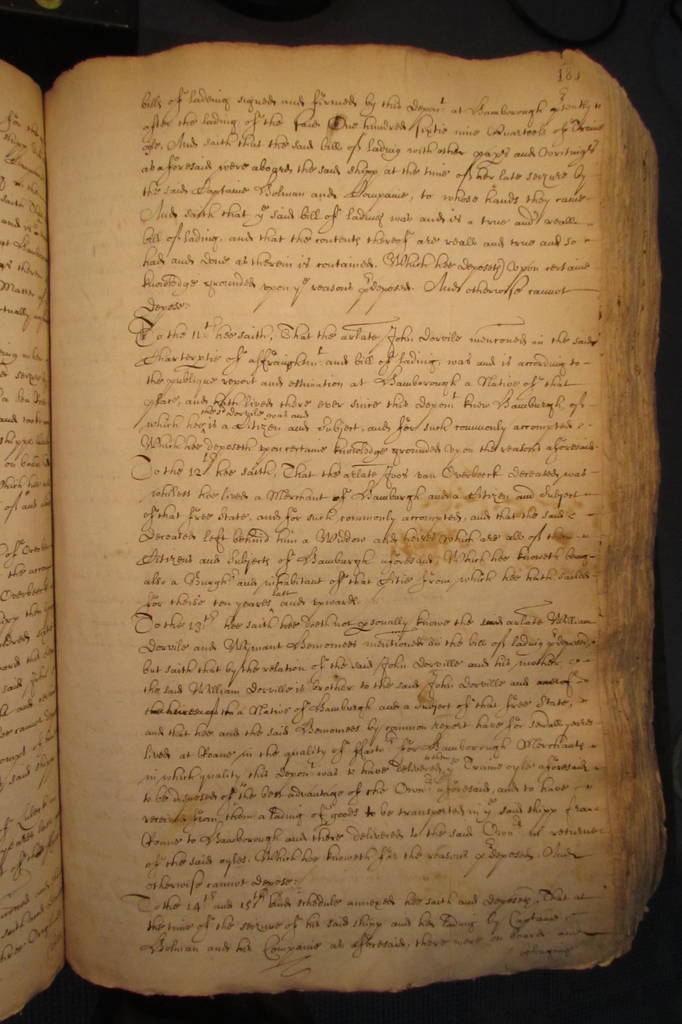 183
bills of ladeing signed and firmed by this depon:t at Hamborough presently
after the lading of the said One hundred sixtie nine Quarteels of Traine
oyle. And saith that the said bill of lading with other papers and writings
as aforesaid were aboard the said shipp at the time of her late seizure by
the said Captaine Bolman and Companie, to whose hands they came
And saith that y:e said bill of lading was and is a true and reall
bill of lading, and that the contents thereof are reall and true and so
had and done as therein is contained. Which hee deposeth upon certaine
knowledge grounded upon y:e reasons predeposed. And otherwise cannot
depose:
To the 11:th hee saith, That the arlate John Dorvile mentioned in the said
Charterptie of affraightm:t and bill of lading, was and is according to
the publique report and estimation at Hamborough a Native of that
place, and hath lived there ever since this depon:t knew Hamburgh, of
which hee the s:d Dorvile was and is a Citizen and subject, and for such commonly accompted
Which hee deposeth upon certaine knowledge grounded upon the reasons aforesaid.
To the 12:th hee saith, That the arlate Joos van Overbeeck deceased was
whilest hee lived a Merchant of Hamburgh and a Citizen and subject
of that free State, and for such commonly accompted, and that the said
deceased left behind him a Widdow and heires which are all of them
Citizens and subjects of Hamburgh aforesaid, Which hee knoweth being
also a Burgh:r and inhabitant of that Citie from which hee hath sailed
for theise ten yeares last and upwards
To the 13:th hee saith hee doeth not personally knowe the arlate William
Dorvile and Wijnant mentioned in the bill of lading predeposed,
but saith that by the relation of the said John Dorville and his mother,
the said William Dorville is brother to the said John Dorville and
a Native of Hamburgh and a subject of that free State,
and that hee and the said by common report have for severall yeares
lived at Roane in the quality of factors for Hamborough Merchants
in which quality this depon:t was to have delivered them y:e Traine oyle aforesaid
to be disposed of the best advantage of the Own:rs aforesaid, and to have
received from them a lading of goods to be transported in y:e said shipp from
Roane to Hamborough and there delivered to the said Own:rs in returne
of the said oyles. Which hee knoweth for the reasons predeposed. And
otherwise cannot depose:
To the 14:th and 15:th and schedule annexed hee saith and deposeth, That at
the time of the seizure of his said shipp and her lading by Captaine
Bolman and his Companie as aforesaid, there were on board and
belonging